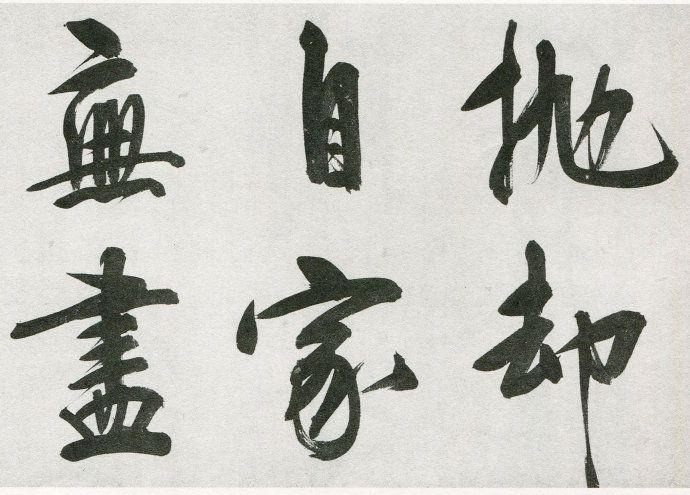 抛却
自家
無盡